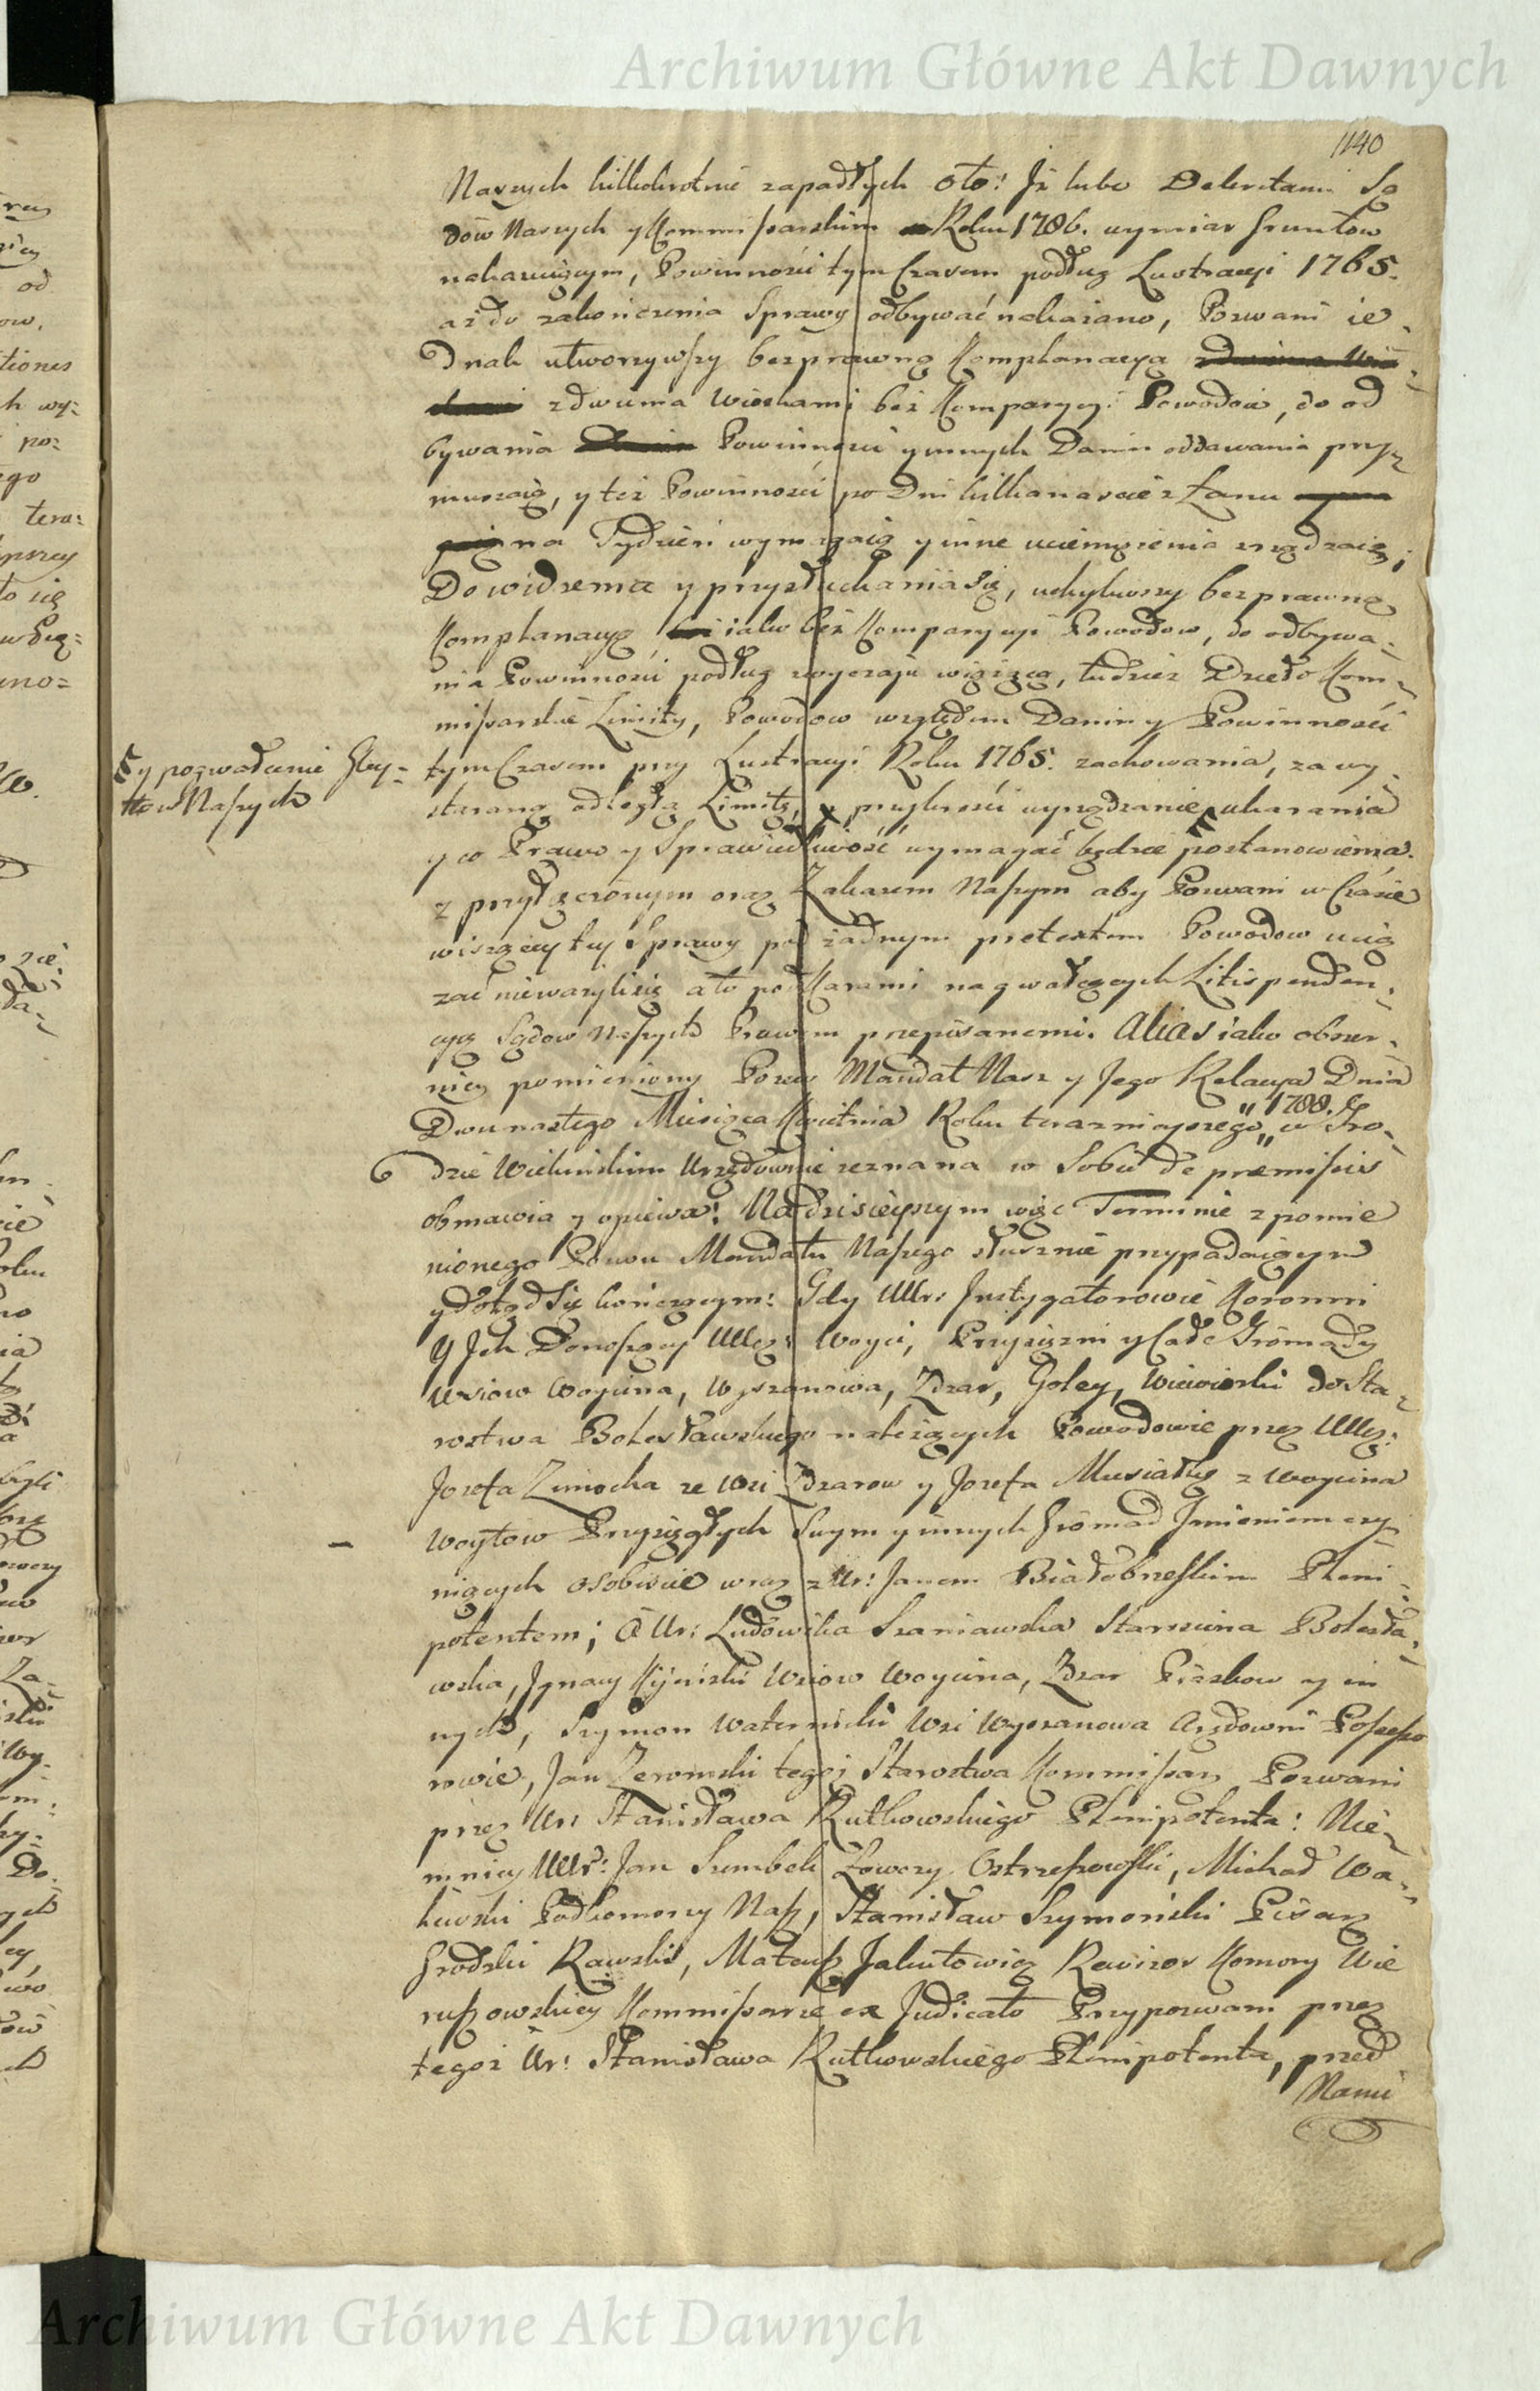 Archiwum Główne Akt Dawnych
1140
Naszych kilkokrotnie zapadłych oto: Jż lubo Dekretami Są
dow Naszych y Kommissarskim Roku 1786. wymiar Gruntow
nakazuiącym, Powinności tym Czasem podług Lustracyi 1765.
aż do zakończenia Sprawy odbywać nakazano, Pozwani ie-
dnak utworzywszy bezprawną Komplanacyą
z dwuma Wioskami bez Komparycyi Powodow, do od
bywania Powinności y innych Danin oddawania przy-
muszaią, y też Powinności po Dni kilkanaście z Łanu
na Tydzień wymagaią y inne uciemiężenia zrządzaią;
Do widzenia y przysłuchania się, uchyliwszy bezprawną
Komplanacyą iako bez Komparycyi Powodow, do odbywa-
nia Powinności podług zwyczaju wiążącą, tudzież Dzieło Kom-
missarskie Limity, Powodow względem Danin y Powinności
tym Czasem przy Lustracyi Roku 1765. zachowania, za wy
staraną odległą Limitę, przykrości wyrządzanie ukarania
y pozwalenie Gley-
tow Naszych
y co Prawo y Sprawiedliwość wymagać będzie postanowienia.
z przyłączonym oraz Zakazem Naszym aby Pozwani w Czasie
wiszącey tey Sprawy pod żadnym pretextem Powodow ucią
żać nieważyli się a to pod Karami na gwałcących Litispenden-
cyą Sądow Naszych Prawem przepisanemi. Alias iako obszer-
niey pomieniony Pozew Mandat Nasz y Jego Relacya Dnia
Dwunastego Miesiąca Kwietnia Roku teraznieyszego „1788." w Gro-
dzie Wieluńskim Urzędownie zeznana w Sobie de praemissis
obmawia y opiewa: Na dzisieyszym więc Terminie z pomie
nionego Pozwu Mandatu Naszego słusznie przypadaiącym
y dotąd Się kończącym: Gdy UUr: Instygatorowie Koronni
y Jch Donoszący UUcz: Woyci, Przysiężni y Całe Gromady
Wsiow Woycina, Wyszanowa, Zdzar, Goley, Wiewiorki do Sta-
rostwa Bolesławskiego należących Powodowie przez UUcz:
Jozefa Zimocha ze Wsi Zdzarow y Jozefa Musiałę z Woycina
Woytow Przysięgłych Swym y innych Gromad Jmieniem czy
niących osobiście wraz z Ur: Janem Białobrzeskim Pleni-
potentem; A Ur: Ludowika Szaniawska Starościna Bolesła-
wska, Jgnacy Kiiński Wsiow Woycina, Zdzar Piaskow y in
nych, Szymon Waternicki Wsi Wyszanowa Arędowni Possesso
rowie, Jan Zeromski tegoż Starostwa Kommissarz Pozwani
przez Ur: Stanisława Rutkowskiego Plenipotenta: Nie-
mniey UUr: Jan Szembek Łowczy Ostrzeszowski, Michał Wa-
lewski Podkomorzy Nasz, Stanisław Szymoński Pisarz
Grodzki Rawski, Mateusz Jakutowicz Rewizor Komory Wie
ruszowskiey Kommissarze ex Judicato Przypozwani przez
tegoż Ur: Stanisława Rutkowskiego Plenipotenta, przed
Nami
Archiwum Główne Akt Dawnych